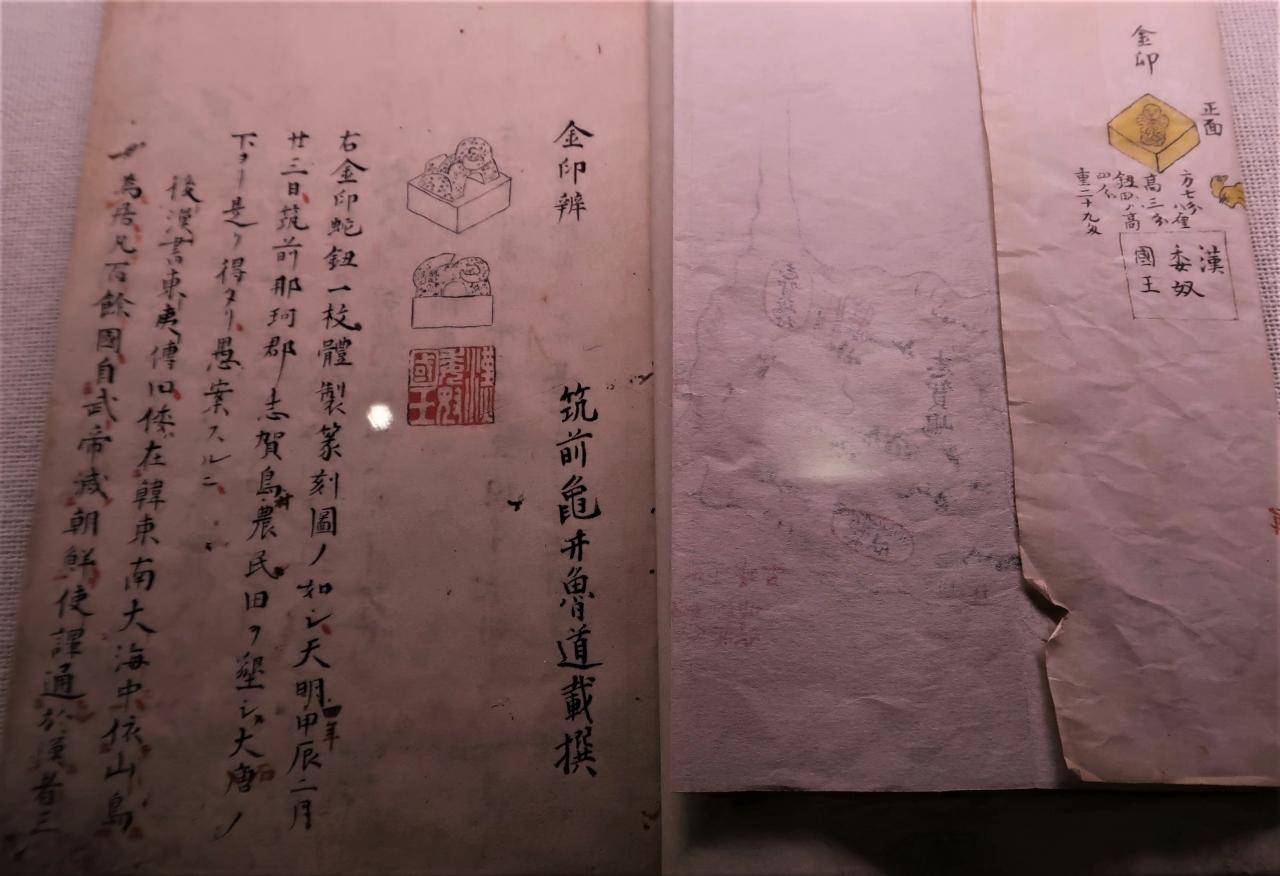 金印
正面
方七分八厘
高三分
鈕四分高
四分
重二十九匁
漢
委奴
國王
志賀嶋
金印辨
筑前龜井魯道載撰
漢委奴國王
右金印蛇鈕一枚體製篆刻圖ノ如シ天明四年甲辰二月
廿三日筑前那珂郡志賀島村農民田ヲ墾シ大唐ノ
下ヨリ是ヲ得タリ愚案スルニ
後漢書東夷傳曰倭在韓東南大海中依山島
為居凡百餘國自武帝滅朝鮮使譯通於漢者三